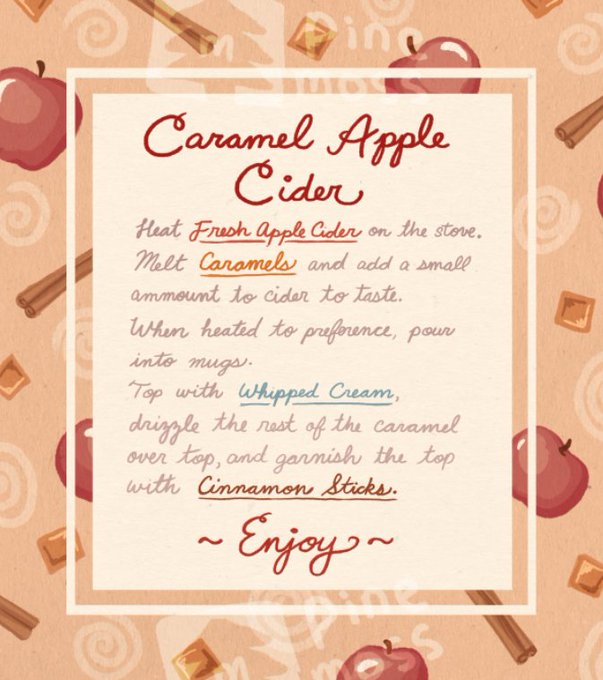 Pine
moss
Caramel Apple
Cider
Heat Fresh Apple Cider on the stove.
Melt Caramels and add a small
ammount to cider to taste.
When heated to preference, pour
into mugs.
Top with Whipped Cream,
drizzle the rest of the caramel
over top, and garnish the top
with Cinnamon Sticks.
~ Enjoy ~
Pine
moss